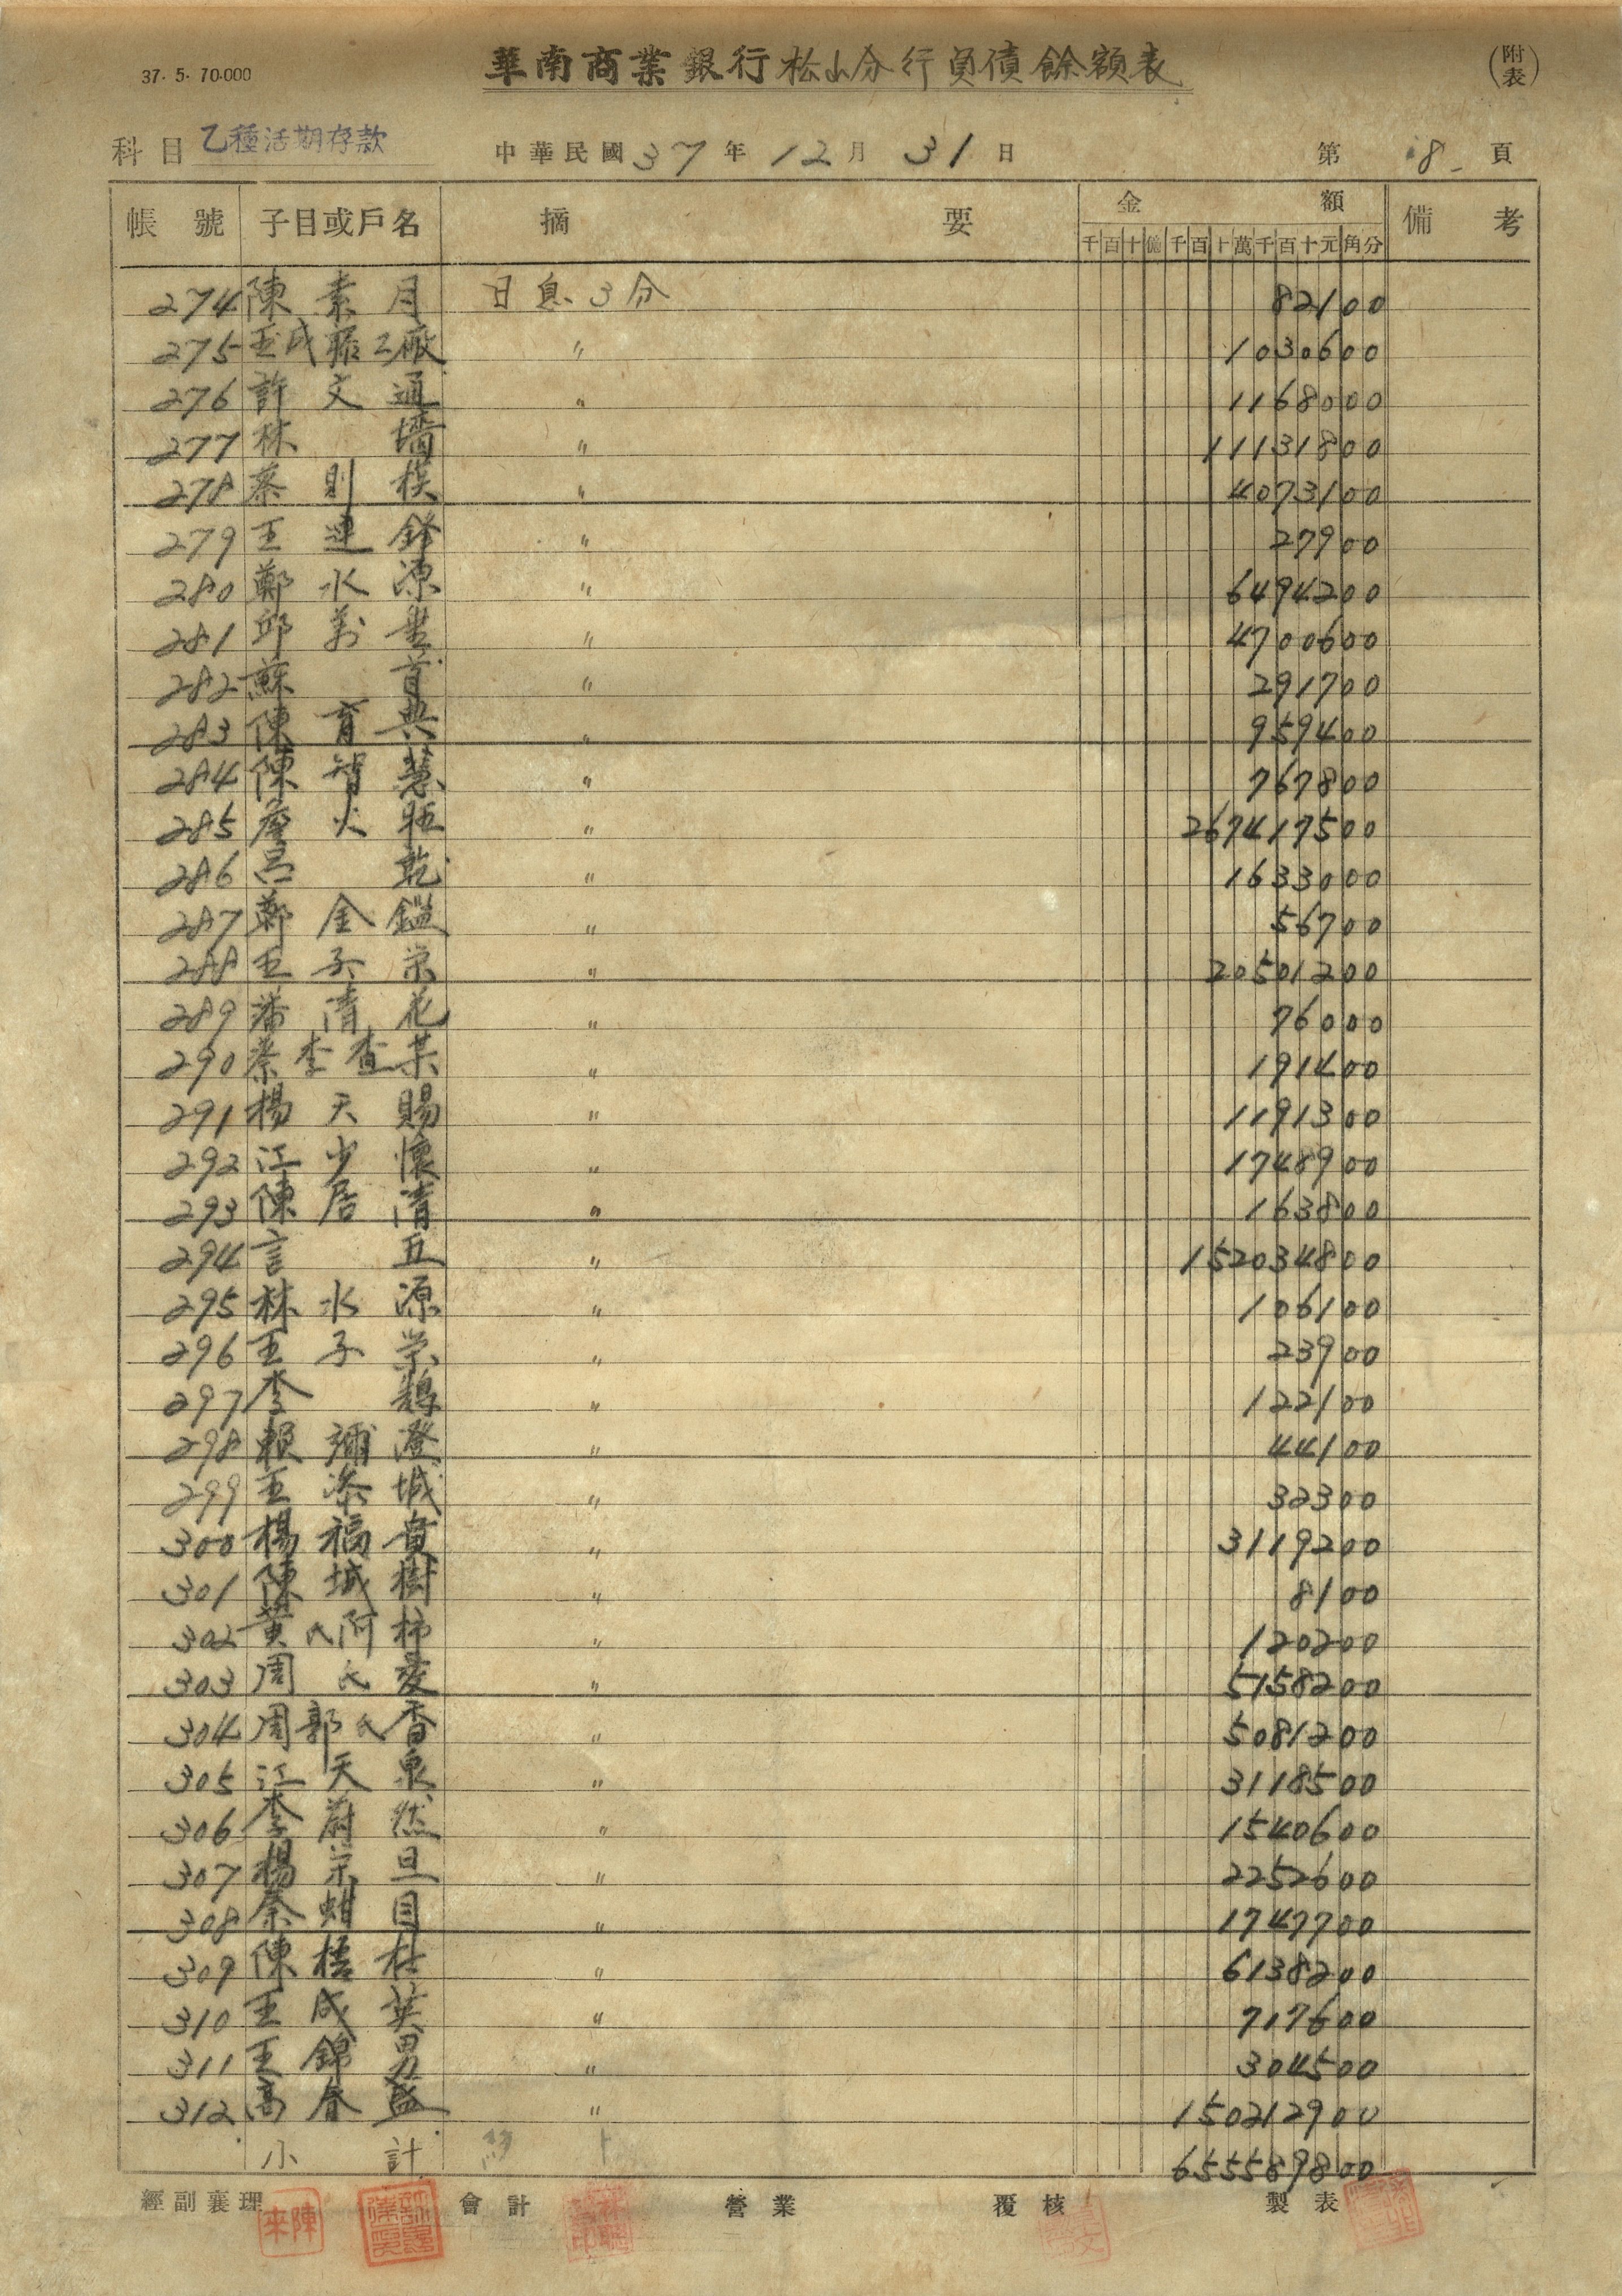 37. 5. 70.000
華南商業銀行松山分行負債餘額表
(附表)
科目 乙種活期存款 中華民國37年12月31日 第8頁
帳號 子目或戶名 摘要 金額 備考
千百十億千百十萬千百十元角分
274 陳素月 日息3分 82100
275 工廠 〃 1030600
276 許文通 〃 1168000
277 林墻 〃 11131800
278 蔡則模 〃 4073100
279 王連鋒 〃 27900
280 鄭水源 〃 6494200
281 邱 〃 4700600
282 蘇首 〃 291700
283 陳育典 〃 959400
284 陳智慧 〃 767800
285 詹火 〃 267417500
286 呂乾 〃 1633000
287 鄭金鑑 〃 56700
288 王子栄 〃 20501200
289 潘清花 〃 76000
290 蔡李查某 〃 191400
291 楊天賜 〃 1191300
292 江少懷 〃 1748900
293 陳居清 〃 163800
294 言五 〃 152034800
295 林水源 〃 106100
296 王子栄 〃 23900
297 李鵠 〃 122100
298 賴彌澄 〃 44100
299 王添城 〃 32300
300 楊福貴 〃 3119200
301 陳城樹 〃 8100
302 黃氏阿柿 〃 120200
303 周氏愛 〃 5158200
304 周郭氏香 〃 5081200
305 江天泉 〃 3118500
306 李蔚然 〃 1540600
307 楊宗旦 〃 2252600
308 蚶目 〃 1747700
309 陳梧桂 〃 6138200
310 王成英 〃 717600
311 王錦男 〃 304500
312 高春盛 〃 150212900
小計 655589800
經副襄理 陳來 會計 營業 覆核 製表